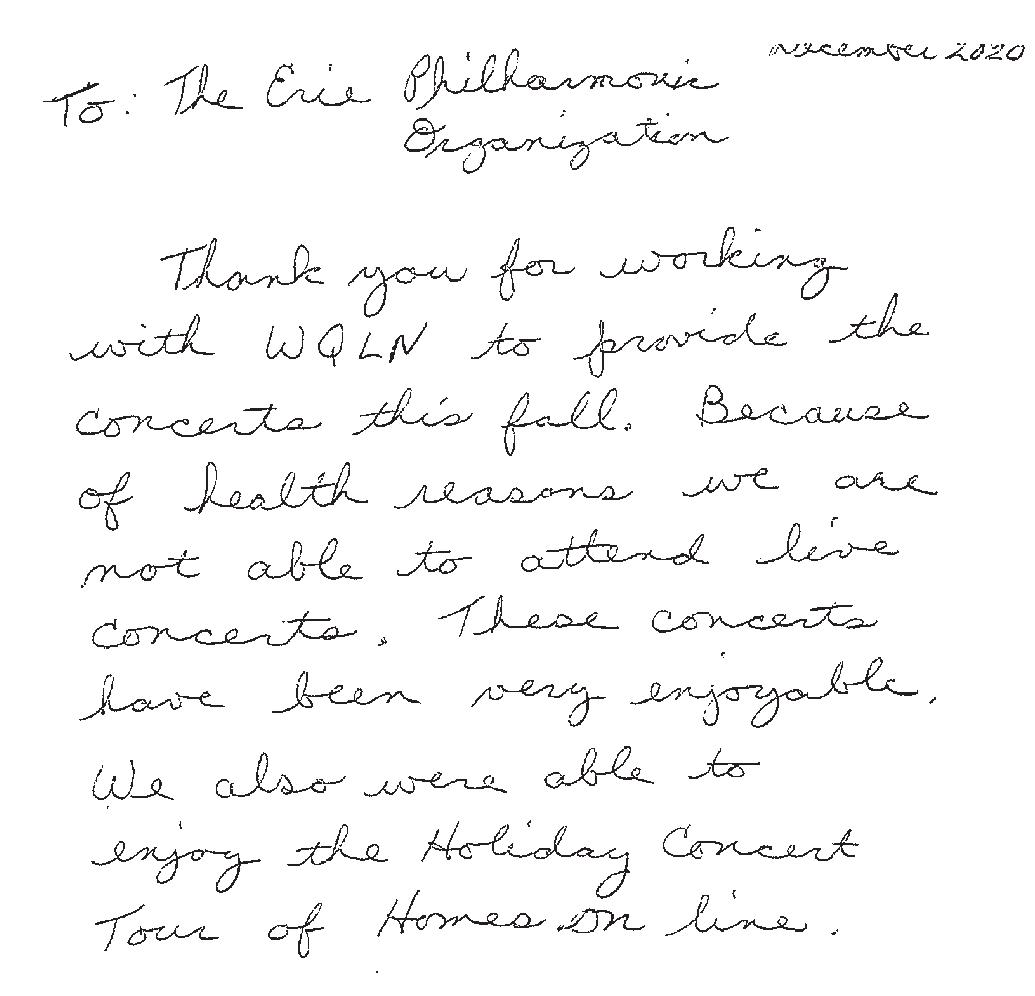 December 2020
To: The Erie Philharmonic
Organization
Thank you for working
with WQLN to provide the
concerts this fall. Because
of health reasons we are
not able to attend live
concerts. These concerts
have been very enjoyable.
We also were able to
enjoy the Holiday Concert
Tour of Homes on line.